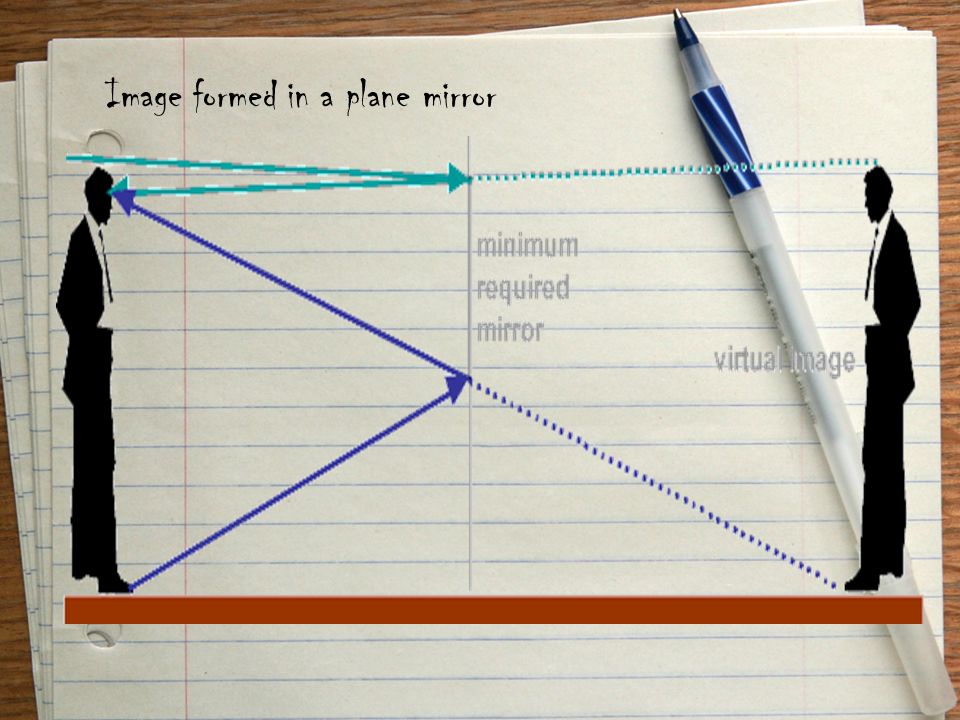 Image formed in a plane mirror
minimum
required
mirror
virtual image